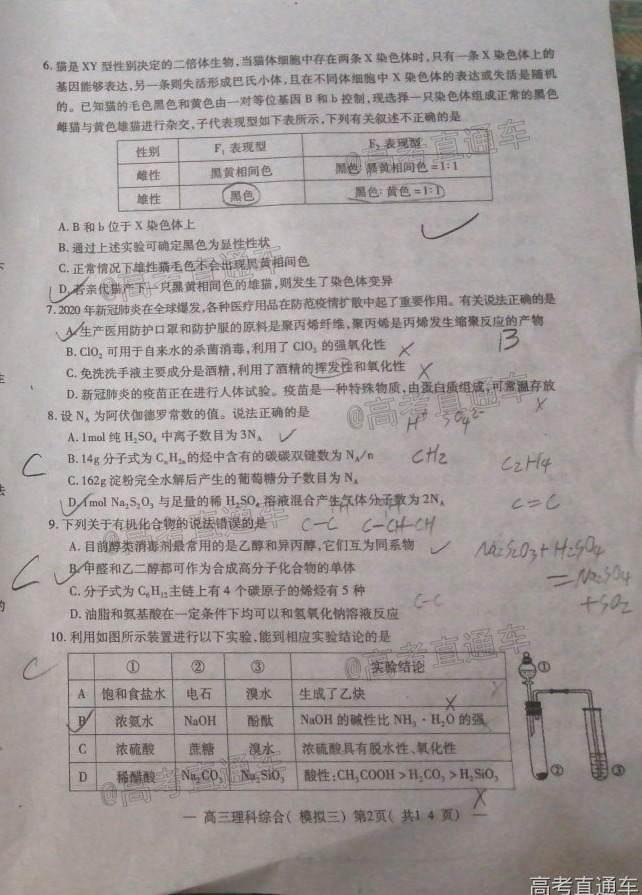 6. 猫是 XY 型性别决定的二倍体生物,当猫体细胞中存在两条 X 染色体时,只有一条 X 染色体上的
基因能够表达,另一条则失活形成巴氏小体,且在不同体细胞中 X 染色体的表达或失活是随机
的。已知猫的毛色黑色和黄色由一对等位基因 B 和 b 控制,现选择一只染色体组成正常的黑色
雌猫与黄色雄猫进行杂交,子代表现型如下表所示,下列有关叙述不正确的是
性别 F₁ 表现型 F₂ 表现型
雌性 黑黄相间色 黑色: 黑黄相间色 = 1:1
雄性 黑色 黑色: 黄色 = 1:1
A. B 和 b 位于 X 染色体上
B. 通过上述实验可确定黑色为显性性状
C. 正常情况下雄性猫毛色不会出现黑黄相间色
D. 若亲代猫产下一只黑黄相间色的雄猫,则发生了染色体变异
7. 2020 年新冠肺炎在全球爆发,各种医疗用品在防范疫情扩散中起了重要作用。有关说法正确的是
A. 生产医用防护口罩和防护服的原料是聚丙烯纤维,聚丙烯是丙烯发生缩聚反应的产物
B. ClO₂ 可用于自来水的杀菌消毒,利用了 ClO₂ 的强氧化性 ×
B
C. 免洗洗手液主要成分是酒精,利用了酒精的挥发性和氧化性 ×
D. 新冠肺炎的疫苗正在进行人体试验。疫苗是一种特殊物质,由蛋白质组成,可常温存放 ×
8. 设 Nₐ 为阿伏伽德罗常数的值。说法正确的是
H⁺ SO₄²⁻
A. 1mol 纯 H₂SO₄ 中离子数目为 3Nₐ
B. 14g 分子式为 CₙH₂ₙ的烃中含有的碳碳双键数为 Nₐ/n
C CH₂ C₂H₄
C. 162g 淀粉完全水解后产生的葡萄糖分子数目为 Nₐ
D. 1mol Na₂S₂O₃ 与足量的稀 H₂SO₄ 溶液混合产生气体分子数为 2Nₐ
C=C
9. 下列关于有机化合物的说法错误的是
C-C C-CH-CH
A. 目前醇类消毒剂最常用的是乙醇和异丙醇,它们互为同系物
Na₂S₂O₃+H₂SO₄
B. 甲醛和乙二醇都可作为合成高分子化合物的单体
C =Na₂SO₄
C. 分子式为 C₆H₁₂主链上有 4 个碳原子的烯烃有 5 种
+SO₂
C-C
D. 油脂和氨基酸在一定条件下均可以和氢氧化钠溶液反应
10. 利用如图所示装置进行以下实验,能到相应实验结论的是
C
① ② ③ 实验结论
A 饱和食盐水 电石 溴水 生成了乙炔
B 浓氨水 NaOH 酚酞 NaOH 的碱性比 NH₃·H₂O 的强 ×
C 浓硫酸 蔗糖 溴水 浓硫酸具有脱水性、氧化性
D 稀醋酸 Na₂CO₃ Na₂SiO₃ 酸性:CH₃COOH > H₂CO₃ > H₂SiO₃
×
①
② ③
— 高三理科综合( 模拟三) 第2页( 共1 4 页) —
@高考直通车
@高考直通车
@高考直通车
@高考直通车
@高考直通车
@高考直通车
高考直通车